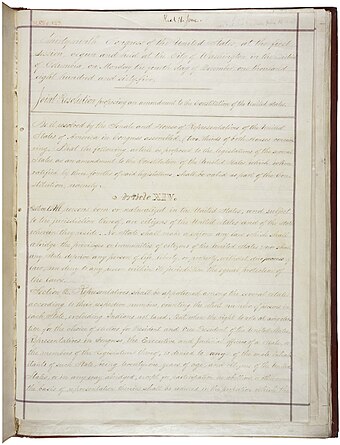 Thirty-ninth Congress of the United States, at the first
Session, begun and held at the City of Washington, in the District
of Columbia, on Monday the fourth day of December, one thousand
eight hundred and sixty-five
Joint Resolution proposing an amendment to the Constitution of the United States.
Be it resolved by the Senate and House of Representatives of the United
States of America in Congress assembled, two thirds of both Houses concurring,
That the following article be proposed to the legislatures of the several
States as an amendment to the Constitution of the United States, which, when
ratified by three fourths of said legislatures, shall be valid as part of the Con-
stitution, namely:
Article XIV.
Section 1. All persons born or naturalized in the United States, and subject
to the jurisdiction thereof, are citizens of the United States and of the State
wherein they reside. No State shall make or enforce any law which shall
abridge the privileges or immunities of citizens of the United States; nor shall
any State deprive any person of life, liberty, or property, without due process of
law; nor deny to any person within its jurisdiction the equal protection of
the laws.
Section 2. Representatives shall be apportioned among the several States
according to their respective numbers, counting the whole number of persons in
each State, excluding Indians not taxed. But when the right to vote at any elec-
tion for the choice of electors for President and Vice President of the United States,
Representatives in Congress, the Executive and Judicial officers of a State, or
the members of the Legislature thereof, is denied to any of the male inhabi-
tants of such State, being twenty-one years of age, and citizens of the United
States, or in any way abridged, except for participation in rebellion or other crime,
the basis of representation therein shall be reduced in the proportion which